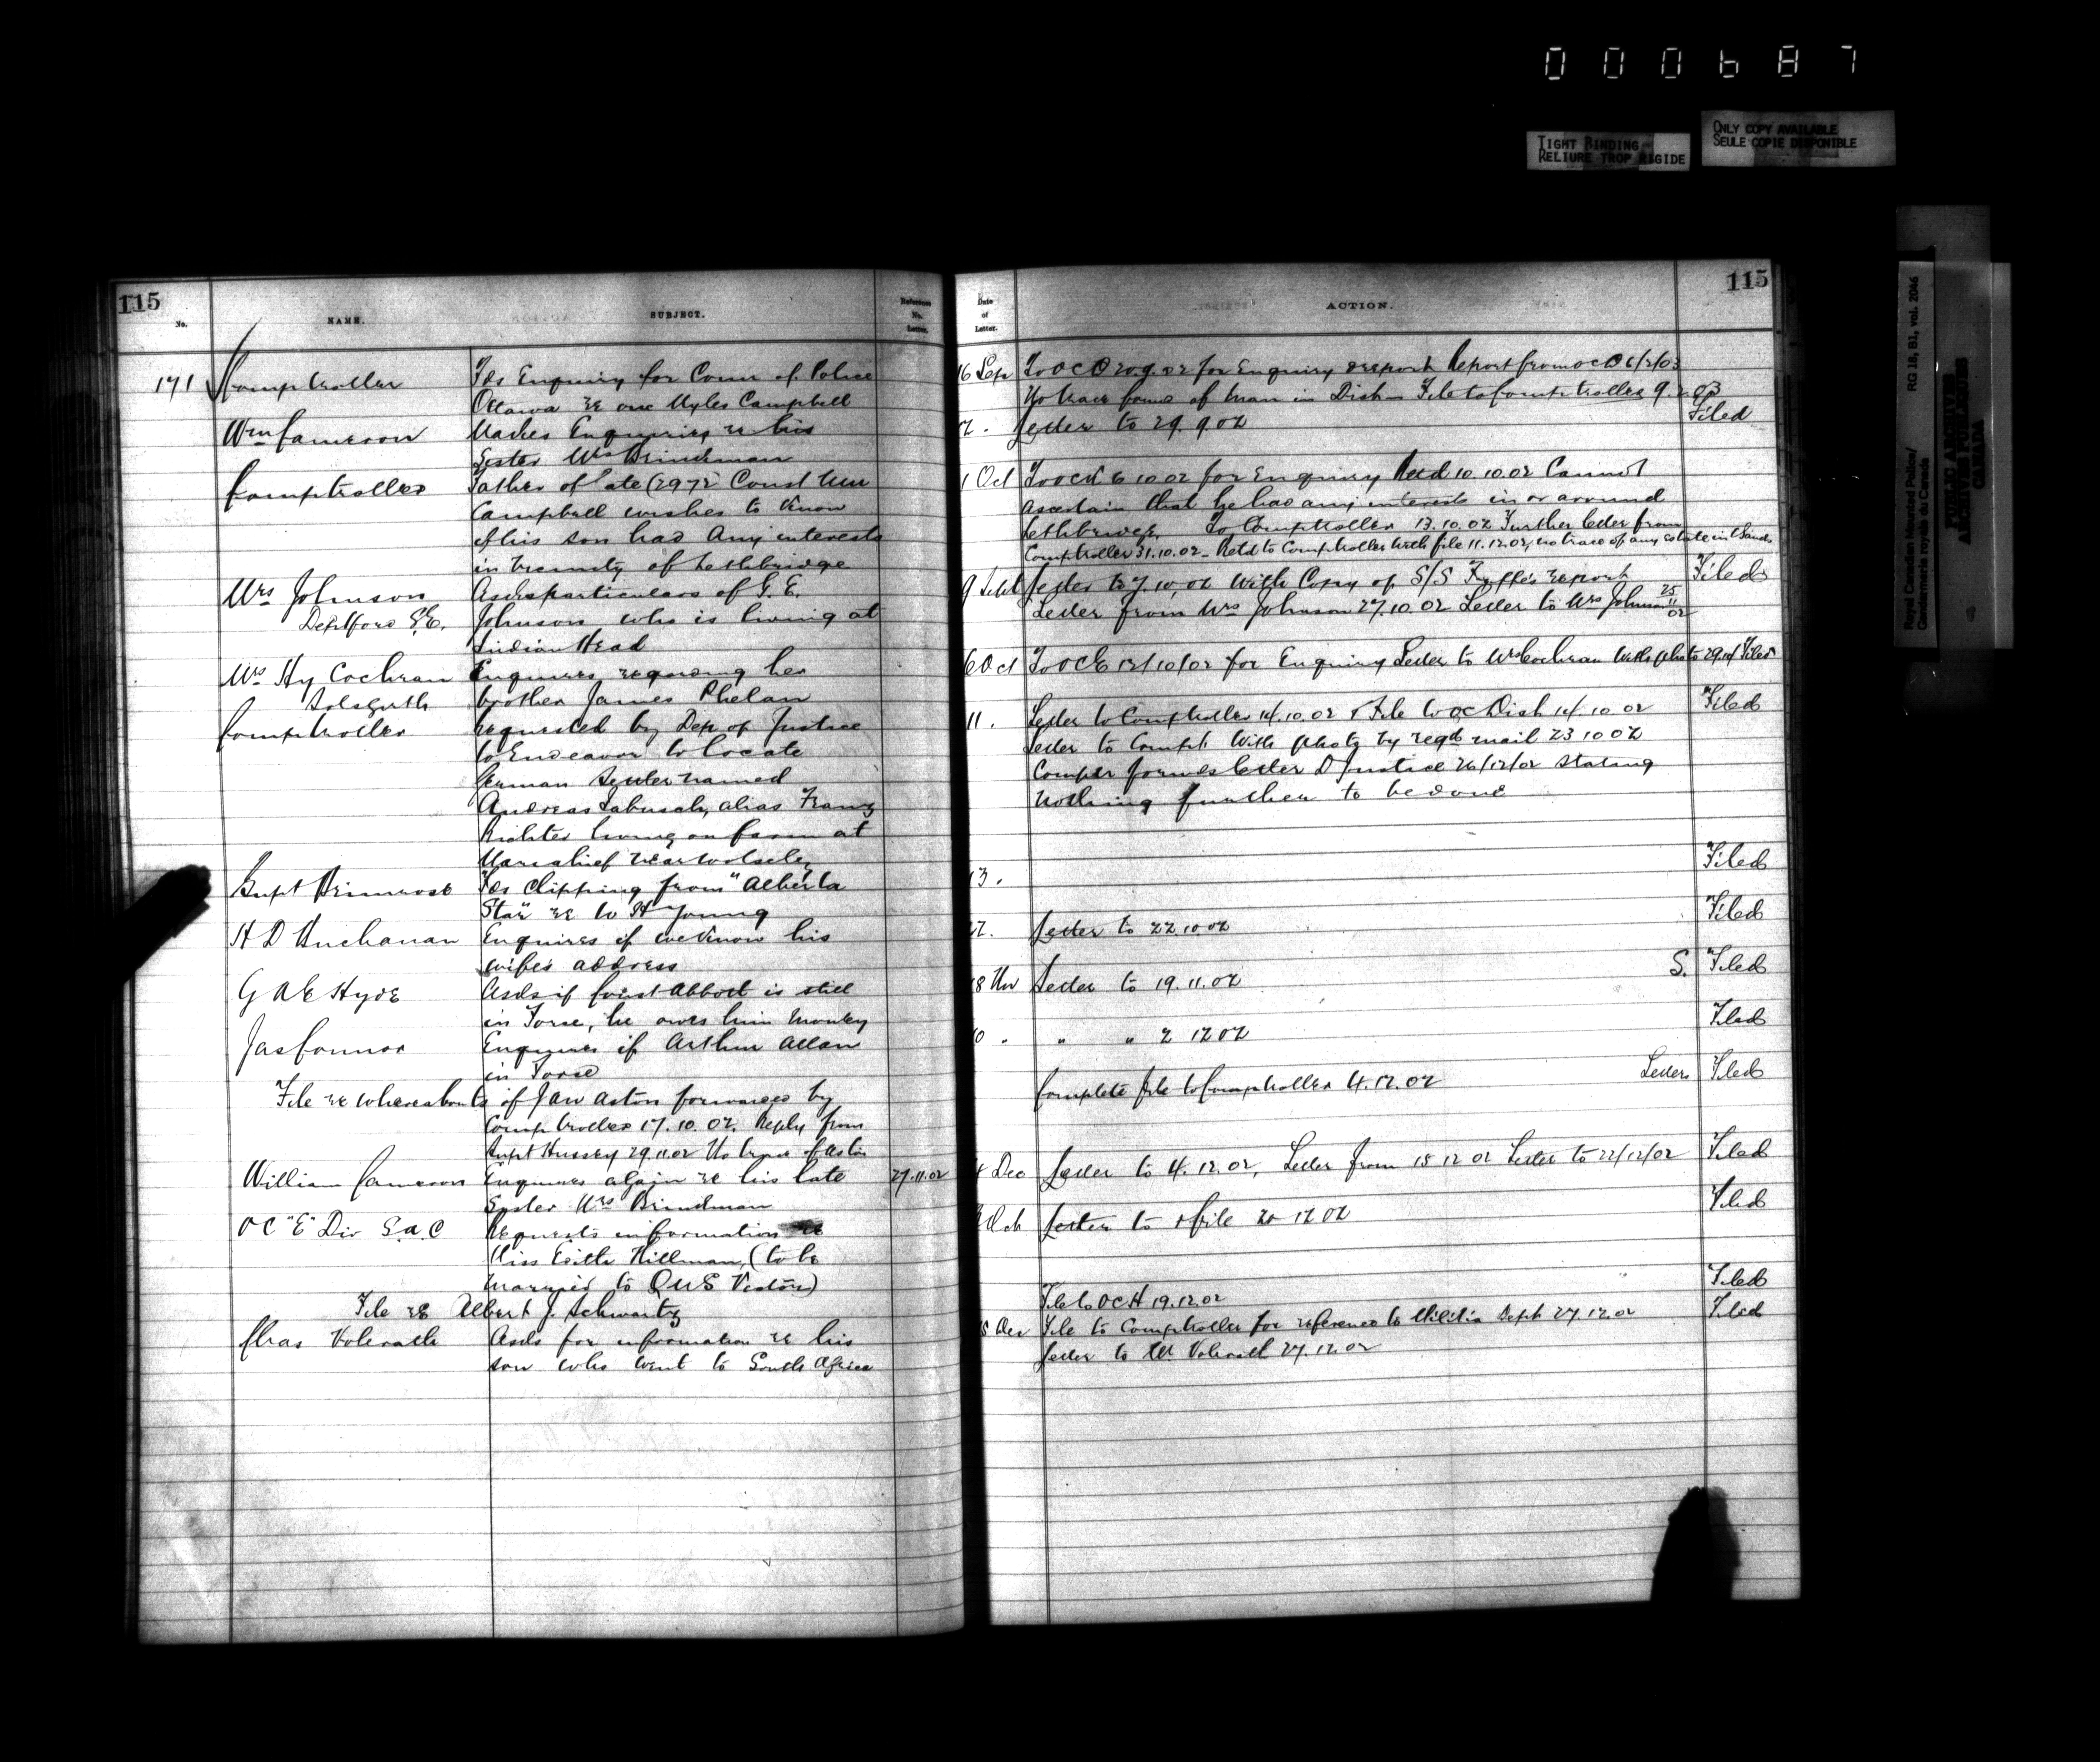 000687
TIGHT BINDING
RELIURE TROP RIGIDE
ONLY COPY AVAILABLE
SEULE COPIE DISPONIBLE
Royal Canadian Mounted Police/
Gendarmerie royale du Canada
RG 18, B1, vol. 2046
PUBLIC ARCHIVES
ARCHIVES PUBLIQUES
CANADA
115
No.
NAME.
SUBJECT.
Reference No. Letter.
171 Comptroller
Fds Enquiry for Comr of Police
Ottawa re one Myles Campbell
Wm Cameron
Makes Enquiries re his
Sister Mrs Brindman
Comptroller
Father of late (2972) Const Wm
Campbell wishes to know
if his son had any interests
in vicinity of Lethbridge
Mrs Johnson
Deptford S.E.
Asks particulars of G. E.
Johnson who is living at
Indian Head
Mrs Hy Cochran
Solsgirth
Enquires regarding her
brother James Phelan
Comptroller
requested by Dep of Justice
to Endeavor to locate
German Settler named
Andreas Labusch, alias Franz
Richter living on farm at
Mariahilf near Wolseley
Supt Primrose
Fds Clipping from "Alberta
Star" re W H Young
H D Buchanan
Enquires if we know his
wife's address
G A E Hyde
Asks if Const Abbott is still
in Force, he owes him money
Jas Connor
Enquires if Arthur Allan
in Force
File re whereabouts of Jan Aston forwarded by
Comptroller 17.10.02. Reply from
Supt Hussey 29.11.02 No trace of Aston
William Cameron
Enquires again re his late
Sister Mrs Brindman
27.11.02
OC "E" Div S.A.C
Requests information re
Miss Edith Hillman, (to be
married to QMS Vestors)
File re Albert J. Schwartz
Chas Volerath
Asks for information re his
son who went to South Africa
115
Date of Letter.
ACTION.
16 Sep To OC D 20.9.02 for Enquiry & report Report from OC D 6/2/03
No trace found of man in Dist File to Comptroller 9.2.03
Letter to 29.9.02 Filed
1 Oct To OC K 6 10.02 for Enquiry Retd 10.10.02 Cannot
ascertain that he had any interests in or around
Lethbridge. To Comptroller 13.10.02 Further letter from
Comptroller 31.10.02 - Retd to Comptroller with file 11.12.02, no trace of any estate in Lands
9 Sept Letter to 7.10.02 with Copy of S/S Fyffe's report Filed
Letter from Mrs Johnson 27.10.02 Letter to Mrs Johnson 25/11/02
6 Oct To OC E 12/10/02 for Enquiry Letter to Mrs Cochran with photo Filed
11. Letter to Comptroller 14.10.02 & File to OC Dist 14.10.02 Filed
Letter to Compt with photo by regd mail 23 10 02
Comptr forwards letter D Justice 26/12/02 stating
nothing further to be done
13. Filed
Letter to 22.10.02 Filed
18 Nov Letter to 19.11.02 S. Filed
" " 2 12 02 Filed
Complete file to Comptroller 4.12.02 Letters Filed
4 Dec Letter to 4.12.02, Letter from 15 12 02 Letter to 22/12/02 Filed
Letter to & file 20 12 02 Filed
File to OC H 19.12.02 Filed
File to Comptroller for reference to Militia Dept 27.12.02 Filed
Letter to Mr Volerath 27.12.02